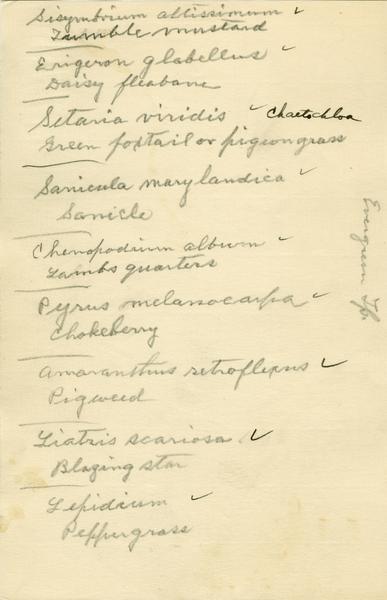 Sisymbrium altissimum ✓
Tumble mustard
Erigeron glabellus ✓
Daisy fleabane
Setaria viridis ✓ Chaetochloa
Green foxtail or pigeongrass
Sanicula marylandica ✓
Sanicle
Chenopodium album ✓
Lambs quarters
Pyrus melanocarpa ✓
Chokeberry
Amaranthus retroflexus ✓
Pigweed
Liatris scariosa ✓
Blazing star
Lepidium ✓
Peppergrass
Evergreen Tp.